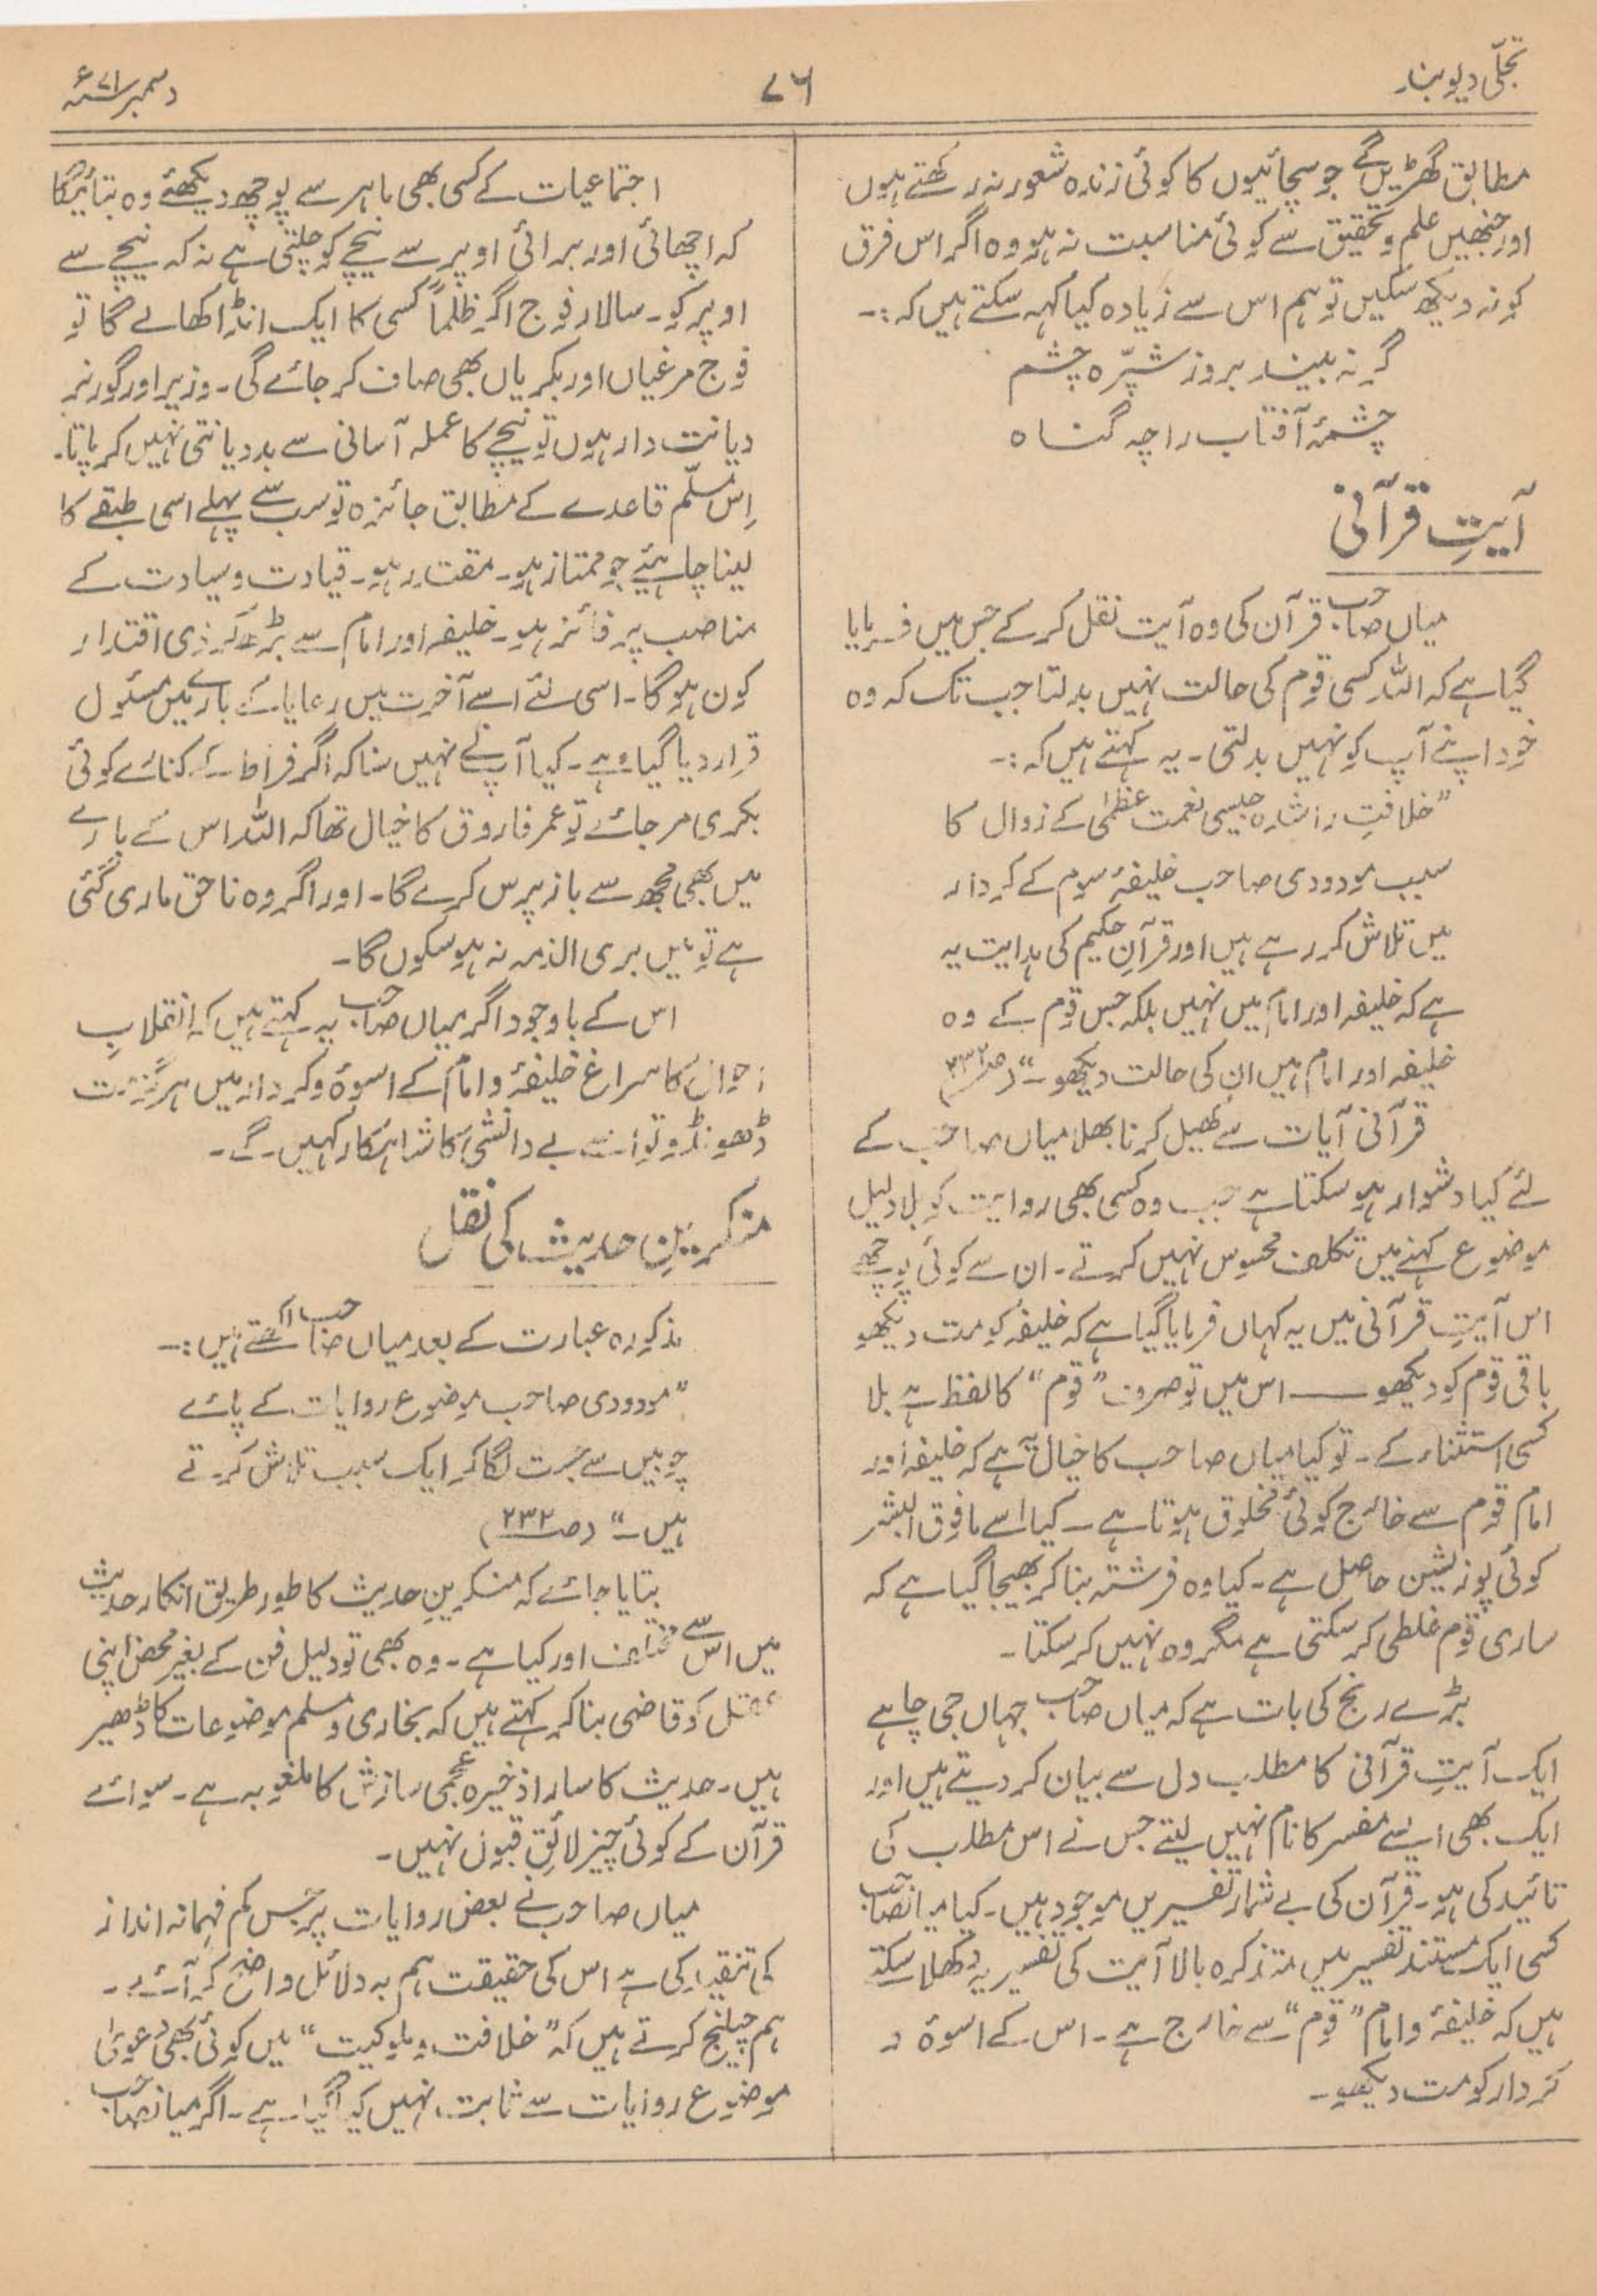 تجلّی دیوبند
۷۶
دسمبر ۷۱ء
مطابق گھڑیں گے جو سچائیوں کا کوئی زندہ شعور نہ رکھتے ہوں
اور جنھیں علم و تحقیق سے کوئی مناسبت نہ ہو وہ اگر اس فرق
کو نہ دیکھ سکیں تو ہم اس سے زیادہ کیا کہہ سکتے ہیں کہ:۔
گر نہ بیند بروز شپّرہ چشم
چشمۂ آفتاب را چہ گناہ
آیتِ قرآنی
میاں صاحب قرآن کی وہ آیت نقل کر کے جس میں فرمایا
گیا ہے کہ اللہ کسی قوم کی حالت نہیں بدلتا جب تک کہ وہ
خود اپنے آپ کو نہیں بدلتی۔ یہ کہتے ہیں کہ:۔
”خلافتِ راشدہ جیسی نعمت عظمٰی کے زوال کا
سبب مودودی صاحب خلیفۂ سوم کے کردار
میں تلاش کر رہے ہیں اور قرآنِ حکیم کی ہدایت یہ
ہے کہ خلیفہ اور امام میں نہیں بلکہ جس قوم کے وہ
خلیفہ اور امام ہیں ان کی حالت دیکھو۔“ (ص۲۳۲)
قرآنی آیات سے کھیل کرنا بھلا میاں صاحب کے
لئے کیا دشوار ہو سکتا ہے جب وہ کسی بھی روایت کو بلا دلیل
موضوع کہنے میں تکلف محسوس نہیں کرتے۔ ان سے کوئی پوچھے
اس آیتِ قرآنی میں یہ کہاں فرمایا گیا ہے کہ خلیفہ کو مت دیکھو
باقی قوم کو دیکھو ــــــ اس میں تو صرف ”قوم“ کا لفظ ہے بلا
کسی استثناء کے۔ تو کیا میاں صاحب کا خیال یہ ہے کہ خلیفہ اور
امام قوم سے خارج کوئی مخلوق ہوتا ہے۔ کیا اسے مافوق البشر
کوئی پوزیشن حاصل ہے۔ کیا وہ فرشتہ بنا کر بھیجا گیا ہے کہ
ساری قوم غلطی کر سکتی ہے مگر وہ نہیں کر سکتا۔
بڑے رنج کی بات ہے کہ میاں صاحب جہاں جی چاہے
ایک آیتِ قرآنی کا مطلب دل سے بیان کر دیتے ہیں اور
ایک بھی ایسے مفسر کا نام نہیں لیتے جس نے اس مطلب کی
تائید کی ہو۔ قرآن کی بے شمار تفسیریں موجود ہیں۔ کیا میانصاحب
کسی ایک مستند تفسیر میں متذکرہ بالا آیت کی تفسیر یہ دکھلا سکتے
ہیں کہ خلیفۂ و امام ”قوم“ سے خارج ہے۔ اس کے اسوۂ و
کردار کو مت دیکھو۔
اجتماعیات کے کسی بھی ماہر سے پوچھ دیکھئے وہ بتائیگا
کہ اچھائی اور برائی اوپر سے نیچے کو چلتی ہے نہ کہ نیچے سے
اوپر کو۔ سالار فوج اگر ظلماً کسی کا ایک انڈا کھا لے گا تو
فوج مرغیاں اور بکریاں بھی صاف کر جائے گی۔ وزیر اور گورنر
دیانت دار ہوں تو نیچے کا عملہ آسانی سے بددیانتی نہیں کر پاتا۔
اِس مسلّم قاعدے کے مطابق جائزہ تو سب سے پہلے اسی طبقے کا
لینا چاہئیے جو ممتاز ہو۔ مقتدر ہو۔ قیادت و سیادت کے
مناصب پر فائز ہو۔ خلیفہ اور امام سے بڑھ کر ذی اقتدار
کون ہو گا۔ اسی لئے اسے آخرت میں رعایا کے بارے میں مسئول
قرار دیا گیا ہے۔ کیا آپ نے نہیں سنا کہ اگر فراط کے کنارے کوئی
بکری مر جائے تو عمر فاروق کا خیال تھا کہ اللہ اس کے بارے
میں بھی مجھ سے باز پرس کرے گا۔ اور اگر وہ ناحق ماری گئی
ہے تو میں بری الذمہ نہ ہو سکوں گا۔
اس کے باوجود اگر میاں صاحب یہ کہتے ہیں کہ انقلابِ
احوال کا سراغ خلیفۂ و امام کے اسوۂ و کردار میں ہرگز مت
ڈھونڈو تو اسے بے دانشی کا شاہکار کہیں گے۔
منکرینِ حدیث کی نقل
مذکورہ عبارت کے بعد میاں صاحب لکھتے ہیں:۔
”مودودی صاحب موضوع روایات کے پائے
چوبیں سے جست لگا کر ایک سبب تلاش کرتے
ہیں۔“ (ص۲۳۲)
بتایا جائے کہ منکرینِ حدیث کا طور طریق انکار حدیث
میں اس سے مختلف اور کیا ہے۔ وہ بھی تو دلیل فن کے بغیر محض اپنی
عقل کو قاضی بنا کر کہتے ہیں کہ بخاری و مسلم موضوعات کا ڈھیر
ہیں۔ حدیث کا سارا ذخیرہ عجمی سازش کا ملغوبہ ہے۔ سوائے
قرآن کے کوئی چیز لائقِ قبول نہیں۔
میاں صاحب نے بعض روایات پر جس کم فہمانہ انداز
کی تنقید کی ہے اس کی حقیقت ہم بہ دلائل واضح کر آئے۔
ہم چیلنج کرتے ہیں کہ ”خلافت و ملوکیت“ میں کوئی بھی دعویٰ
موضوع روایات سے ثابت نہیں کیا گیا ہے۔ اگر میانصاحب